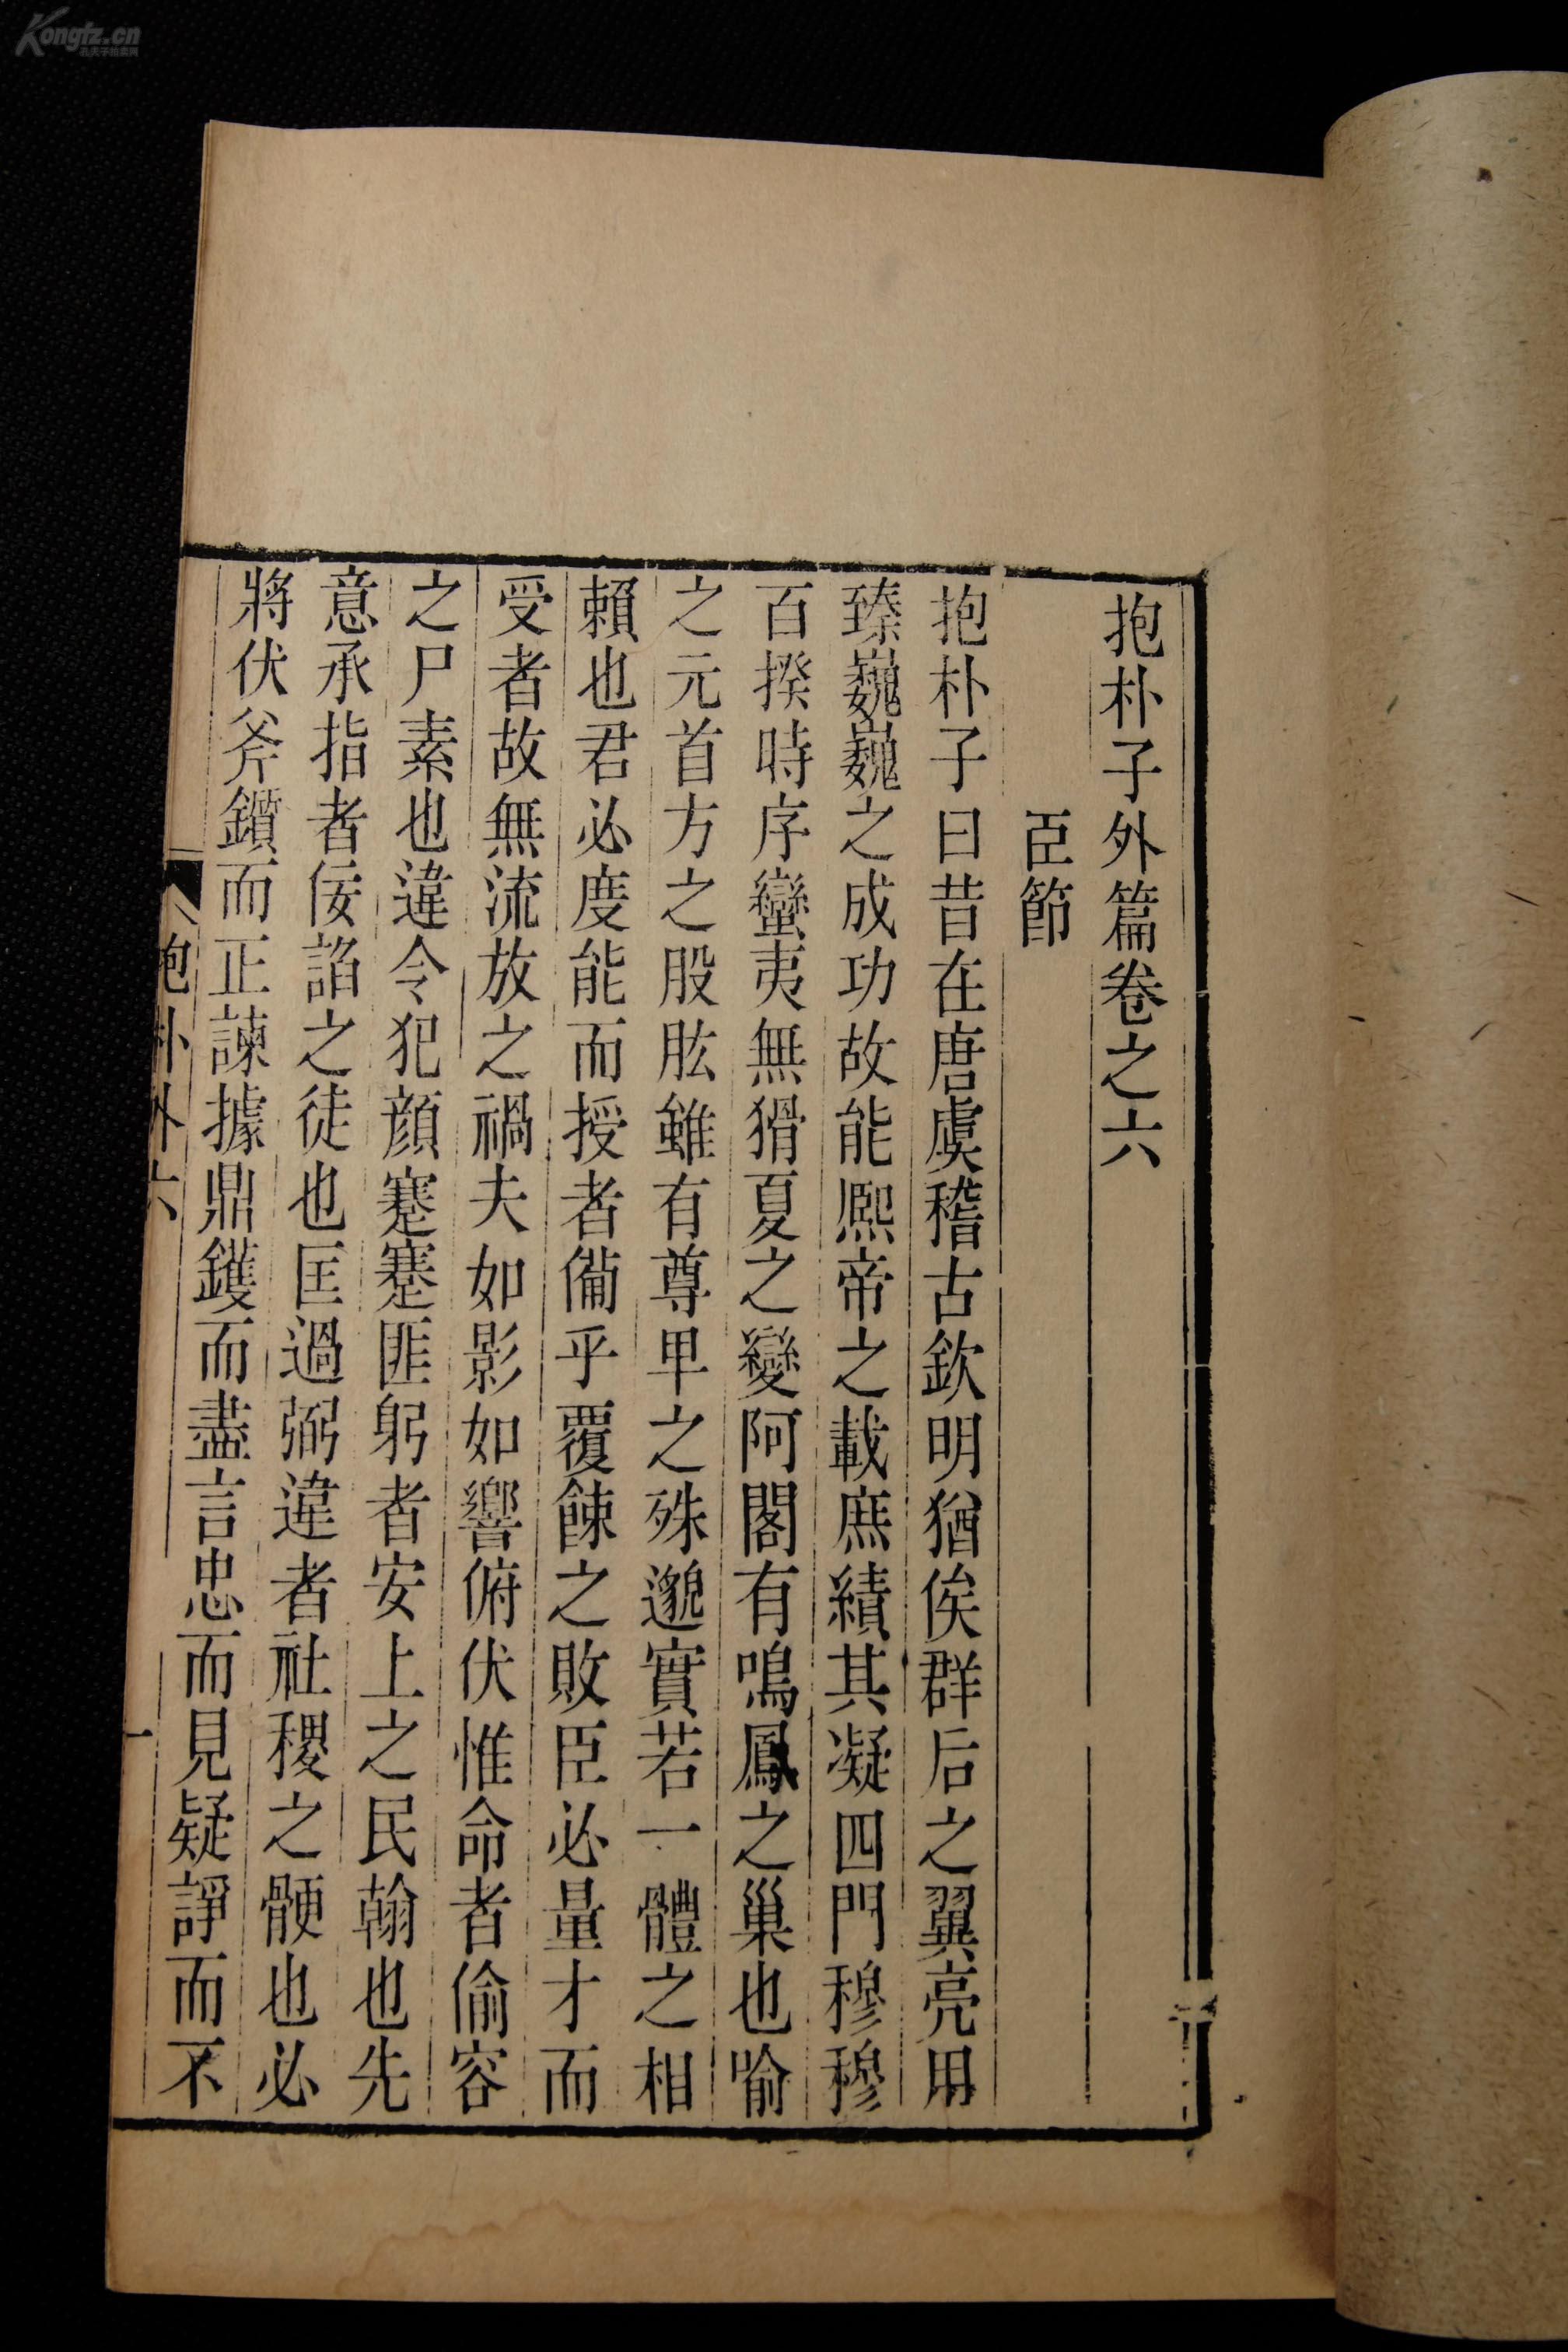 抱朴子外篇卷之六
臣節
抱朴子曰昔在唐虞稽古欽明猶俟群后之翼亮用
臻巍巍之成功故能熈帝之載庶績其凝四門穆穆
百揆時序蠻夷無猾夏之變阿閣有鳴鳳之巢也喻
之元首方之股肱雖有尊卑之殊邈實若一體之相
賴也君必度能而授者備乎覆餗之敗臣必量才而
受者故無流放之禍夫如影如響俯伏惟命者偷容
之尸素也違令犯顔蹇蹇匪躬者安上之民翰也先
意承指者佞諂之徒也匡過弼違者社稷之骾也必
將伏斧鑕而正諫據鼎鑊而盡言忠而見疑諍而不
抱朴外六
一
Kongfz.cn